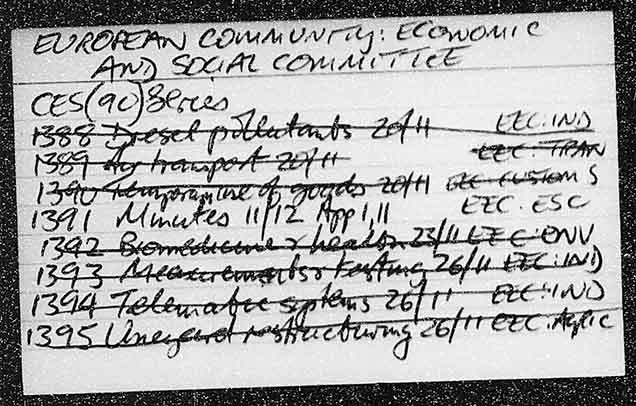 EUROPEAN COMMUNITY: ECONOMIC
AND SOCIAL COMMITTEE
CES(90) Series
1388 Diesel pollutants 20/11 EEC.IND
1389 Air transport 20/11 EEC.TRAN
1390 Temporary use of goods 20/11 EEC CUSTOMS
1391 Minutes 11/12 App 1,11 EEC.ESC
1392 Biomedicine & health 23/11 EEC.ENV
1393 Measurements & testing 26/11 EEC.IND
1394 Telematic systems 26/11 EEC.IND
1395 Vineyard restructuring 26/11 EEC.Agric